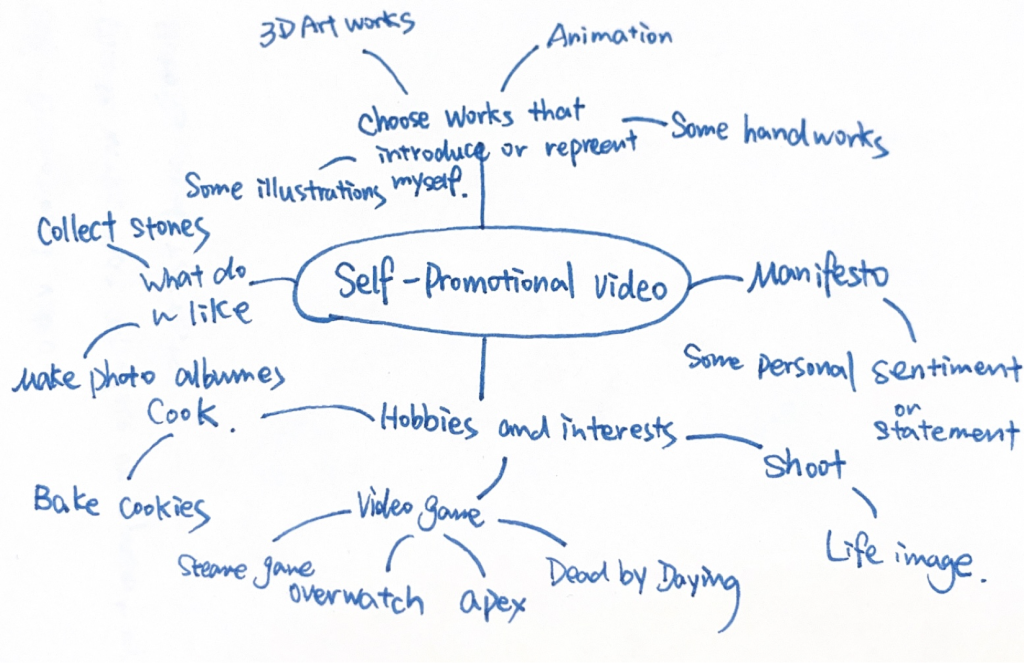 3D Art works
Animation
choose works that
introduce or repreent
myself.
Some handworks
Some illustrations
Collect stones
What do
u like
Self-Promotional video
Manifesto
Make photo albumes
Some personal sentiment
or
statement
Cook.
Hobbies and interests
Shoot
Bake cookies
Video game
Life image.
Steame game
overwatch
apex
Dead by Daying